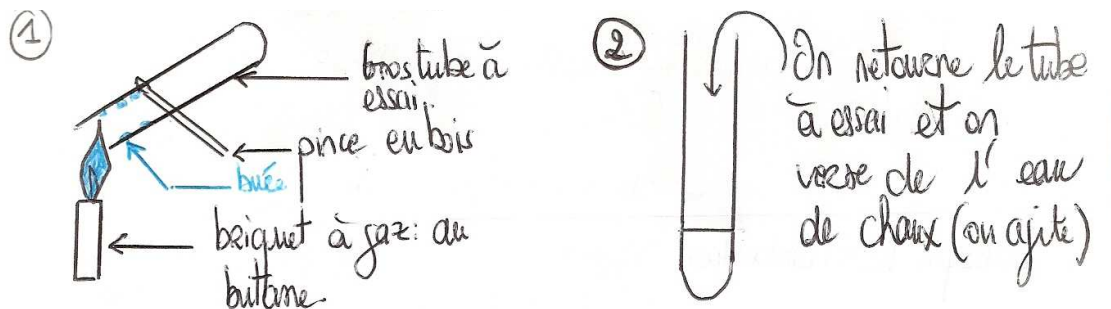 1
Gros tube à
essai.
pince en bois
buée
briquet à gaz: au
buttane.
2
On retourne le tube
à essai et on
verse de l'eau
de chaux (on agite)